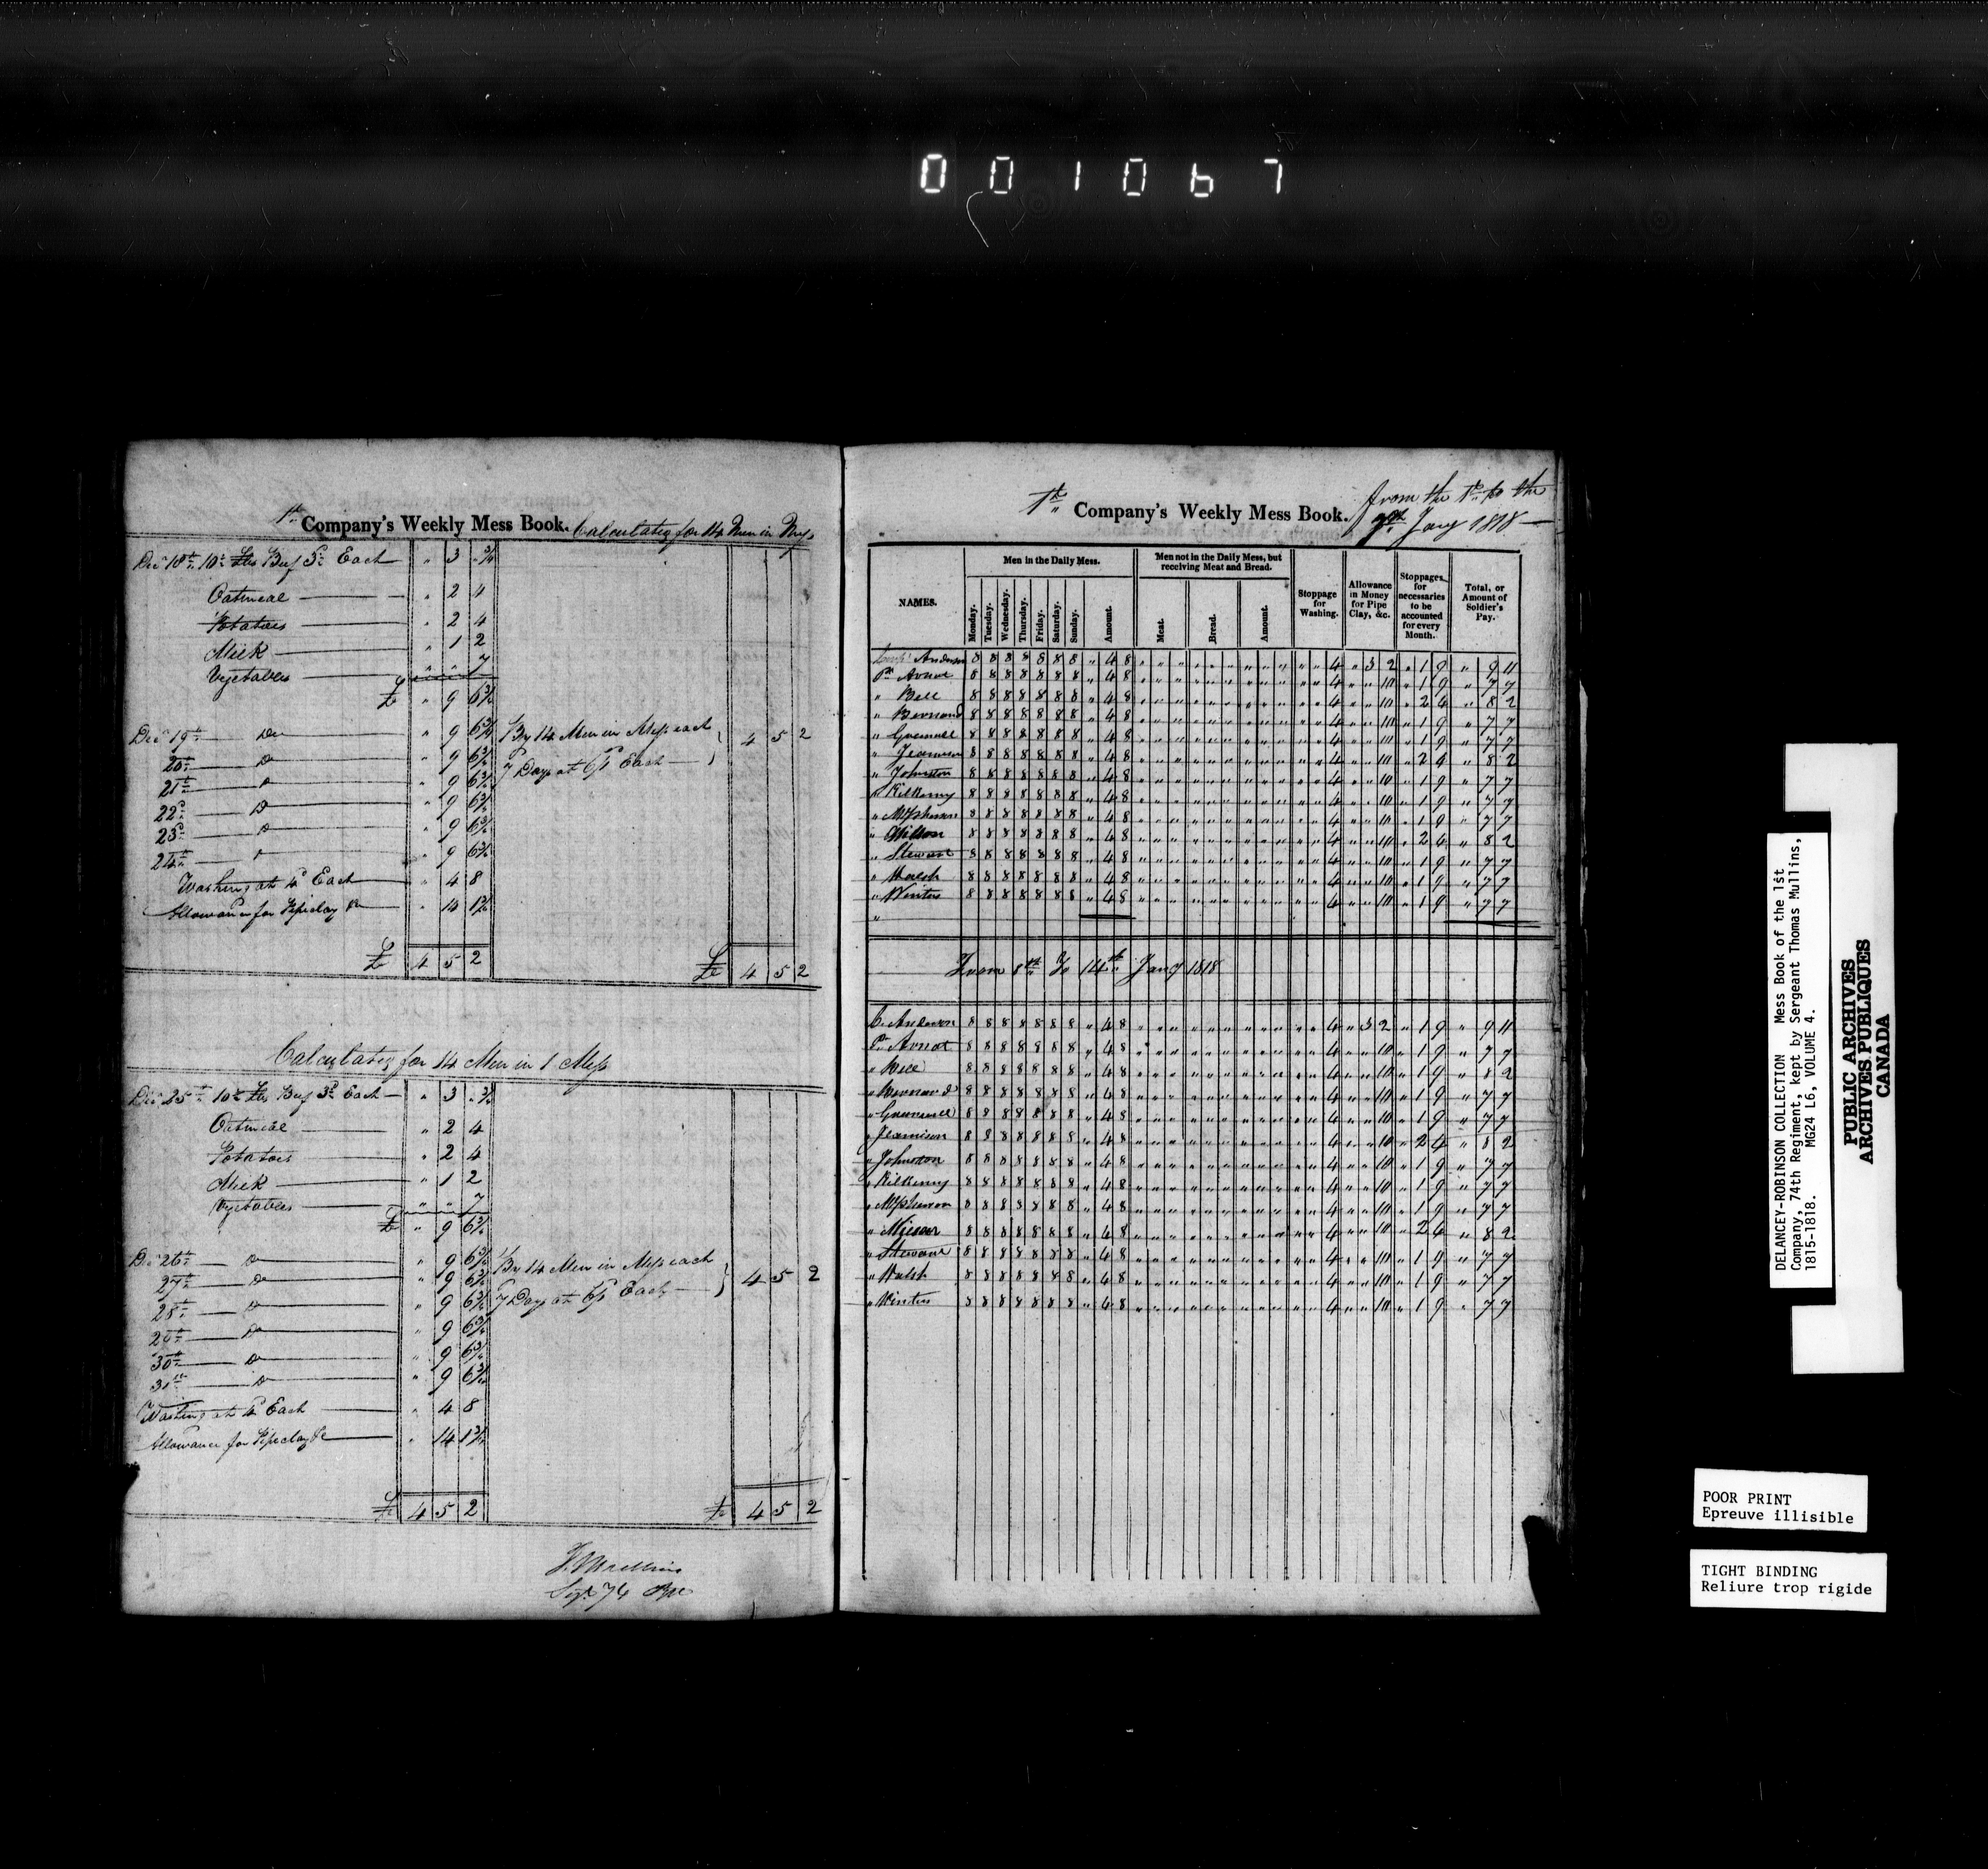 001067
1st Company's Weekly Mess Book. Calculating for 14 Men in Mess
Decr 18th 10½ lbs Beef 3d Each " 3 " ¾
Oatmeal " 2 4
Potatoes " 2 4
Milk " 1 2
Vegetables " " 7
£ " 9 6¾
Decr 19th Do " 9 6¾
By 14 Men in Mess each 4 5 2
20th Do " 9 6¾
7 Days at Each
21st Do " 9 6¾
22d Do " 9 6¾
23d Do " 9 6¾
24th Do " 9 6¾
Washing at 4d Each " 4 8
Allowance for Pipeclay &c " 14 1¾
£ 4 5 2 £ 4 5 2
Calculating for 14 Men in 1 Mess
Decr 25th 10½ lbs Beef 3d Each " 3 " ¾
Oatmeal " 2 4
Potatoes " 2 4
Milk " 1 2
Vegetables " " 7
£ " 9 6¾
Decr 26th Do " 9 6¾
By 14 Men in Mess each 4 5 2
27th Do " 9 6¾
7 Days at Each
28th Do " 9 6¾
29th Do " 9 6¾
30th Do " 9 6¾
31st Do " 9 6¾
Washing at 4d Each " 4 8
Allowance for Pipeclay &c " 14 1¾
£ 4 5 2 £ 4 5 2
T. Mullins
Sergt 74 Rgt
1st Company's Weekly Mess Book. from the 1st to the
7th Jany 1818
NAMES.
Men in the Daily Mess.
Monday. Tuesday. Wednesday. Thursday. Friday. Saturday. Sunday. Amount.
Men not in the Daily Mess, but receiving Meat and Bread.
Meat. Bread. Amount.
Stoppage for Washing.
Allowance in Money for Pipe Clay, &c.
Stoppages for necessaries to be accounted for every Month.
Total, or Amount of Soldier's Pay.
Anderson 8 8 8 8 8 8 8 " 4 8 " " " " " " " " " " " 4 " 3 2 " 1 9 " 9 11
Pte Arnot 8 8 8 8 8 8 8 " 4 8 " " " " " " " " " " " 4 " " 10 " 1 9 " 7 7
" Bell 8 8 8 8 8 8 8 " 4 8 " " " " " " " " " " " 4 " " 10 " 2 4 " 8 2
" Bernard 8 8 8 8 8 8 8 " 4 8 " " " " " " " " " " " 4 " " 10 " 1 9 " 7 7
" Gremell 8 8 8 8 8 8 8 " 4 8 " " " " " " " " " " " 4 " " 10 " 1 9 " 7 7
" Jeamison 8 8 8 8 8 8 8 " 4 8 " " " " " " " " " " " 4 " " 10 " 2 4 " 8 2
" Johnston 8 8 8 8 8 8 8 " 4 8 " " " " " " " " " " " 4 " " 10 " 1 9 " 7 7
" Kilkenny 8 8 8 8 8 8 8 " 4 8 " " " " " " " " " " " 4 " " 10 " 1 9 " 7 7
" McPherson 8 8 8 8 8 8 8 " 4 8 " " " " " " " " " " " 4 " " 10 " 1 9 " 7 7
" 8 8 8 8 8 8 8 " 4 8 " " " " " " " " " " " 4 " " 10 " 2 4 " 8 2
" Stewart 8 8 8 8 8 8 8 " 4 8 " " " " " " " " " " " 4 " " 10 " 1 9 " 7 7
" Walsh 8 8 8 8 8 8 8 " 4 8 " " " " " " " " " " " 4 " " 10 " 1 9 " 7 7
" Winters 8 8 8 8 8 8 8 " 4 8 " " " " " " " " " " " 4 " " 10 " 1 9 " 7 7
"
From 8th To 14th Jany 1818
C. Anderson 8 8 8 8 8 8 8 " 4 8 " " " " " " " " " " " 4 " 3 2 " 1 9 " 9 11
Pte Arnot 8 8 8 8 8 8 8 " 4 8 " " " " " " " " " " " 4 " " 10 " 1 9 " 7 7
" Bell 8 8 8 8 8 8 8 " 4 8 " " " " " " " " " " " 4 " " 10 " 1 9 " 8 2
" Bernard 8 8 8 8 8 8 8 " 4 8 " " " " " " " " " " " 4 " " 10 " 1 9 " 7 7
" Gremell 8 8 8 8 8 8 8 " 4 8 " " " " " " " " " " " 4 " " 10 " 1 9 " 7 7
" Jeamison 8 8 8 8 8 8 8 " 4 8 " " " " " " " " " " " 4 " " 10 " 2 4 " 8 2
" Johnston 8 8 8 8 8 8 8 " 4 8 " " " " " " " " " " " 4 " " 10 " 1 9 " 7 7
" Kilkenny 8 8 8 8 8 8 8 " 4 8 " " " " " " " " " " " 4 " " 10 " 1 9 " 7 7
" McPherson 8 8 8 8 8 8 8 " 4 8 " " " " " " " " " " " 4 " " 10 " 1 9 " 7 7
" 8 8 8 8 8 8 8 " 4 8 " " " " " " " " " " " 4 " " 10 " 2 4 " 8 2
" Stewart 8 8 8 8 8 8 8 " 4 8 " " " " " " " " " " " 4 " " 10 " 1 9 " 7 7
" Walsh 8 8 8 8 8 8 8 " 4 8 " " " " " " " " " " " 4 " " 10 " 1 9 " 7 7
" Winters 8 8 8 8 8 8 8 " 4 8 " " " " " " " " " " " 4 " " 10 " 1 9 " 7 7
DELANCEY-ROBINSON COLLECTION Mess Book of the 1st
Company, 74th Regiment, kept by Sergeant Thomas Mullins,
1815-1818. MG24 L6, VOLUME 4.
PUBLIC ARCHIVES
ARCHIVES PUBLIQUES
CANADA
POOR PRINT
Epreuve illisible
TIGHT BINDING
Reliure trop rigide